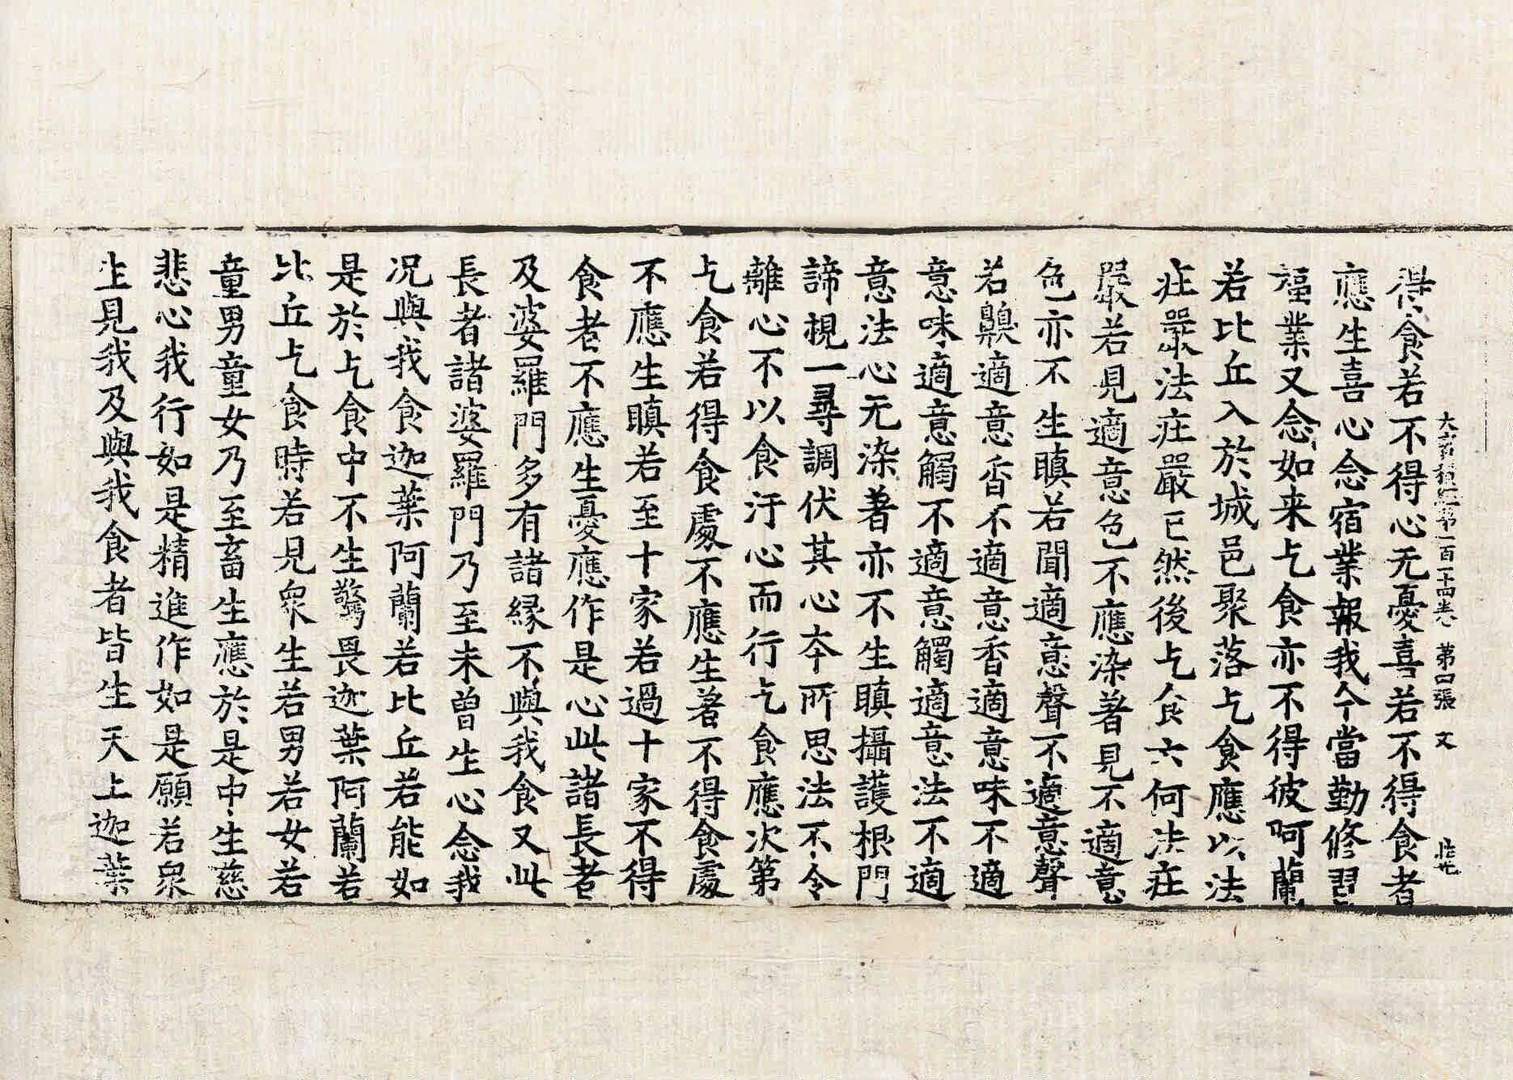 大寳積經第一百一十四卷　第四張　文
得食若不得心无憂喜若不得食者
應生喜心念宿業報我今當勤修習
福業又念如来乞食亦不得彼阿蘭
若比丘入於城邑聚落乞食應以法
庄嚴法庄嚴已然後乞食云何法庄
嚴若見適意色不應染著見不適意
色亦不生瞋若聞適意聲不適意聲
若齅適意香不適意香適意味不適
意味適意觸不適意觸適意法不適
意法心无染著亦不生瞋攝護根門
諦視一尋調伏其心夲所思法不令
離心不以食汙心而行乞食應次第
乞食若得食處不應生著不得食處
不應生瞋若至十家若過十家不得
食者不應生憂應作是心此諸長者
及婆羅門多有諸縁不與我食又此
長者諸婆羅門乃至未曾生心念我
况與我食迦葉阿蘭若比丘若能如
是於乞食中不生驚畏迦葉阿蘭若
比丘乞食時若見衆生若男若女若
童男童女乃至畜生應於是中生慈
悲心我行如是精進作如是願若衆
生見我及與我食者皆生天上迦葉